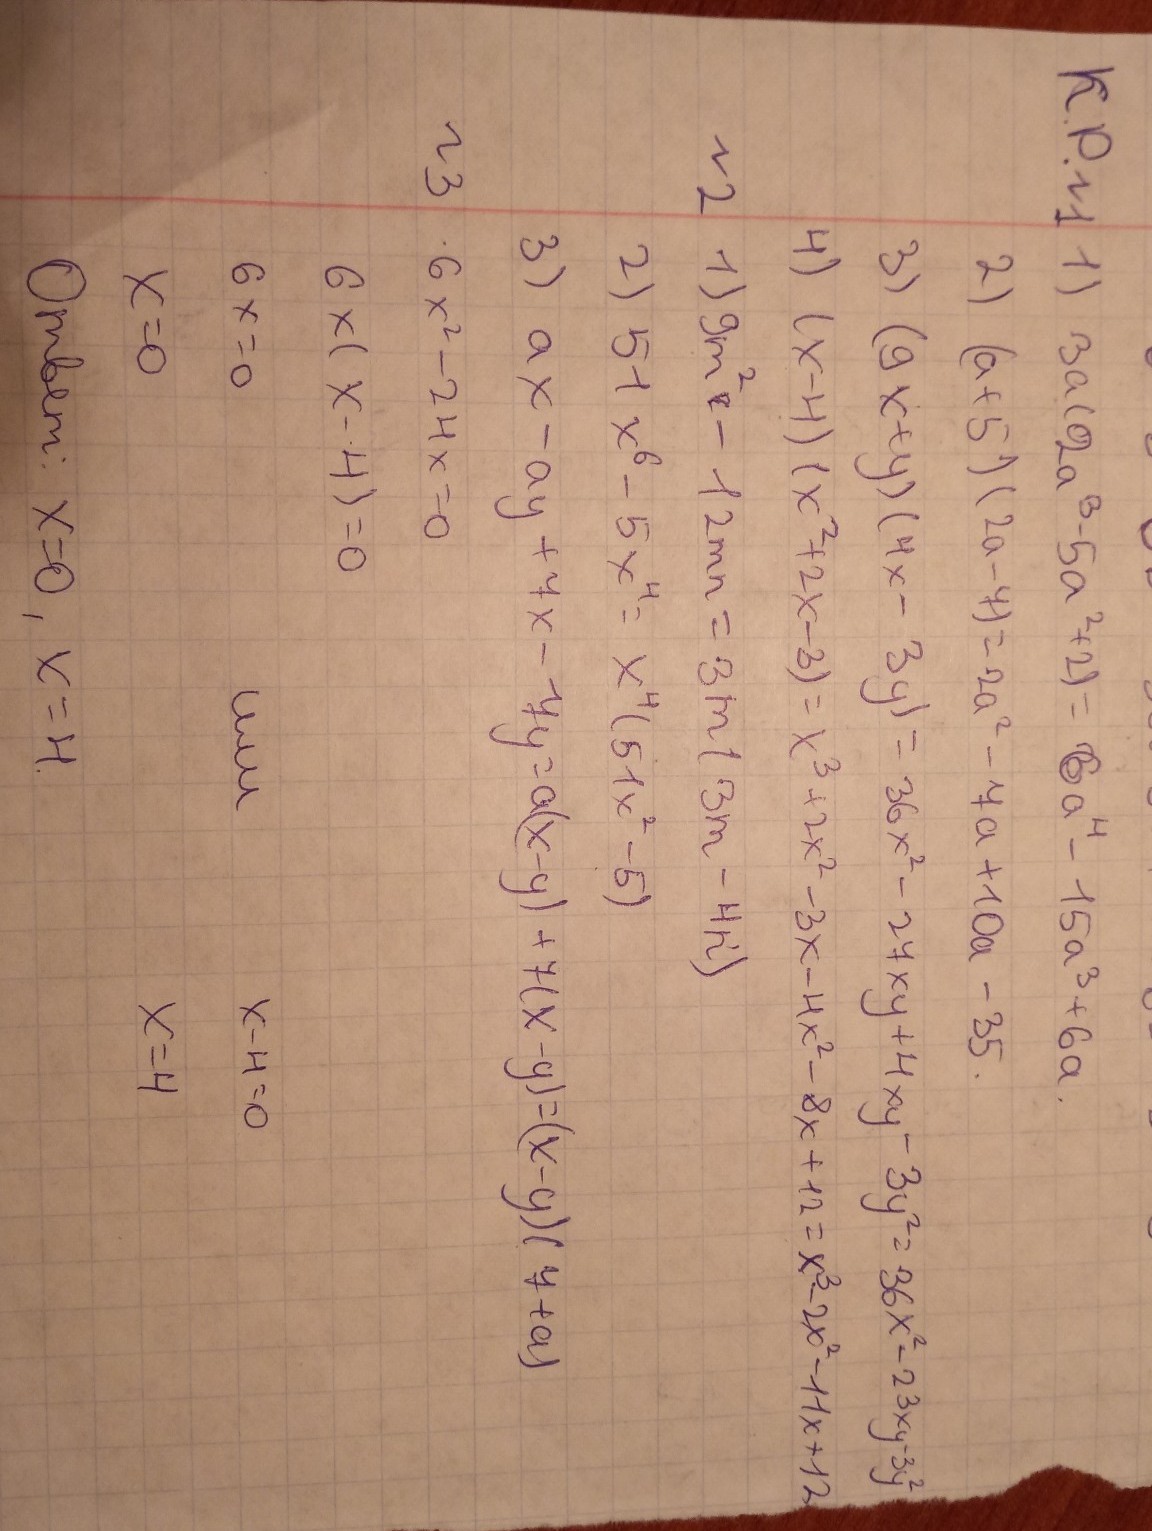 К.Р. №1 1) 3a(2a³-5a²+2)= 6a⁴-15a³+6a.
2) (a+5)(2a-7)=2a²-7a+10a-35.
3) (9x+y)(4x-3y)=36x²-27xy+4xy-3y²=36x²-23xy-3y²
4) (x-4)(x²+2x-3)=x³+2x²-3x-4x²-8x+12=x³-2x²-11x+12
№2 1) 9m²-12mn=3m(3m-4n)
2) 51x⁶-5x⁴=x⁴(51x²-5)
3) ax-ay+7x-7y=a(x-y)+7(x-y)=(x-y)(7+a)
№3 6x²-24x=0
6x(x-4)=0
6x=0 или x-4=0
x=0 x=4
Ответ: x=0, x=4.